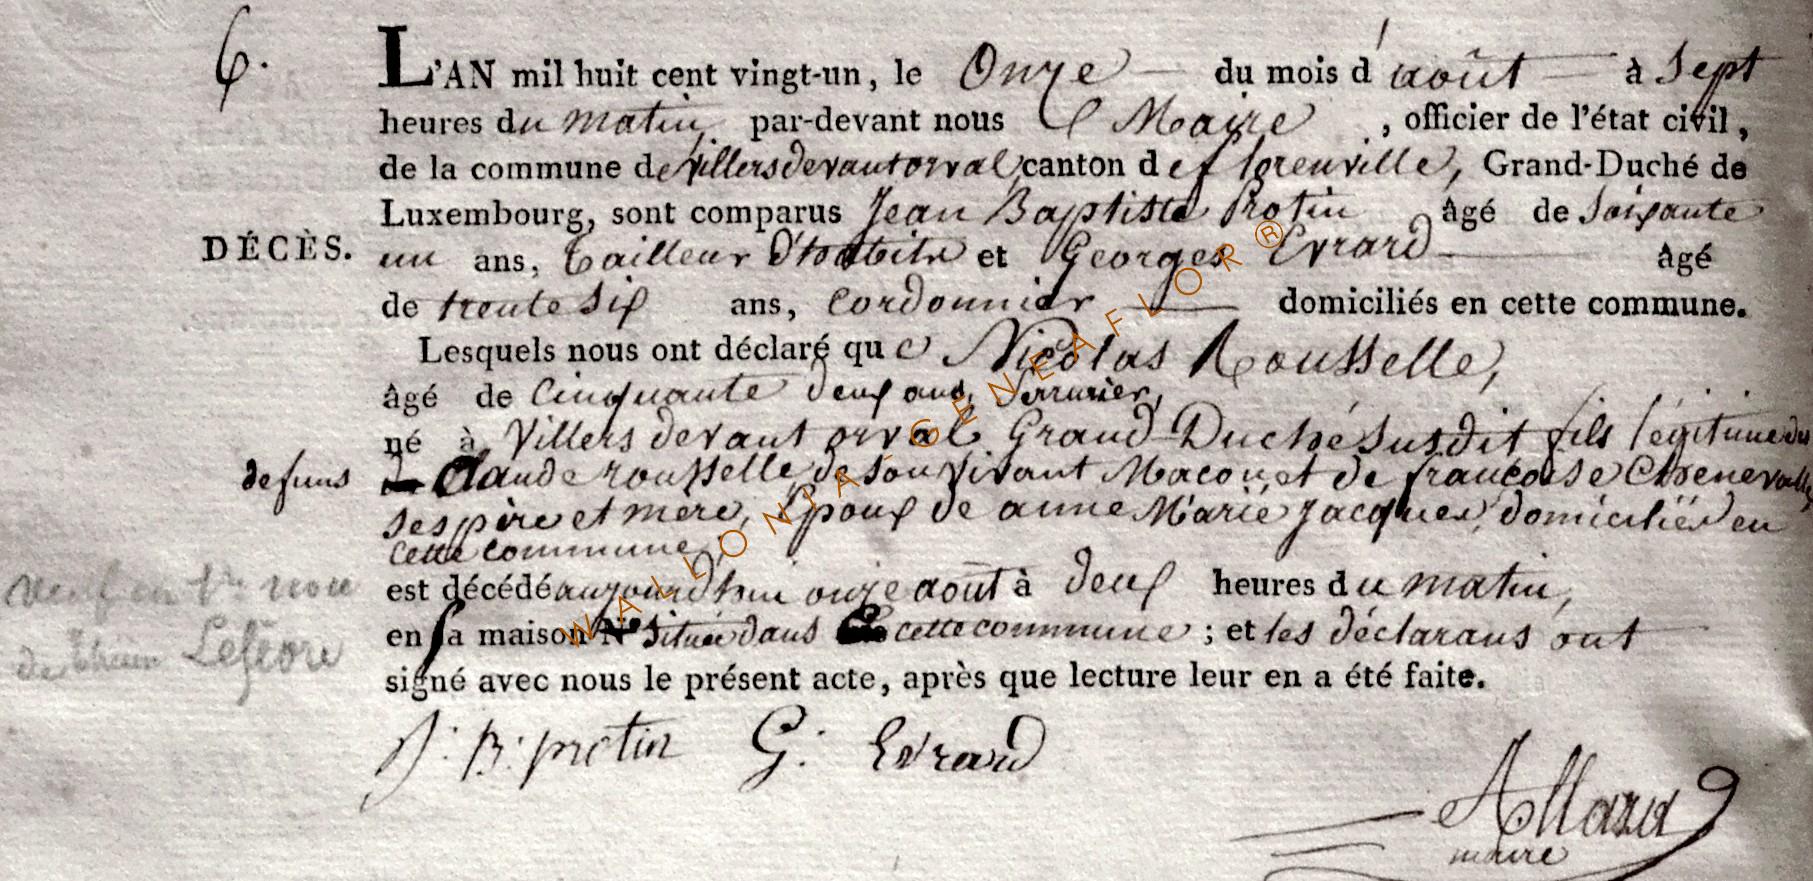 6.
L'AN mil huit cent vingt-un, le Onze du mois d'août à Sept
heures du matin, par-devant nous Maire, officier de l'état civil,
de la commune de villersdevantorval, canton de florenville, Grand-Duché de
Luxembourg, sont comparus Jean Baptiste Protin âgé de soixante
DÉCÈS.
un ans, tailleur D'habits et Georges Evrard âgé
de trente six ans, Cordonnier domiciliés en cette commune.
Lesquels nous ont déclaré que Nicolas Rousselle,
âgé de Cinquante deux ans, Serrurier,
né à Villers devant orval Grand-Duché Susdit fils légitime des
defuns Claude rousselle, de son Vivant Macon, et de françoise Chenevalle,
ses père et mère, Epoux de anne Marie Jacques, domiciliés en
cette commune,
est décédé aujourd'hui onze août à deux heures du matin,
en sa maison Située dans cette commune; et les déclarans ont
signé avec nous le présent acte, après que lecture leur en a été faite.
veuf en
de Lefevre
J. B. protin G. Evrard
Allard
maire
WALLONIA - GENEAFLOR ®